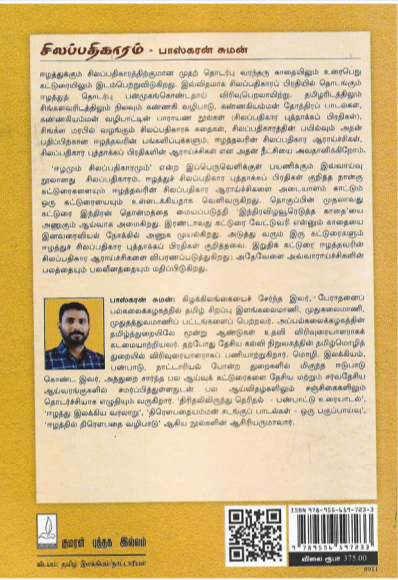 சிலப்பதிகாரம் - பாஸ்கரன் சுமன்
ஈழத்துக்கும் சிலப்பதிகாரத்திற்குமான முதற் தொடர்பு வரந்தரு காதையிலும் உரைபெறு
கட்டுரையிலும் இடம்பெற்றுவிடுகிறது. இவ்விதமாக சிலப்பதிகாரப் பிரதியில் தொடங்கும்
ஈழத்துத் தொடர்பு பன்முகங்கொண்டதாய் விரிவுபெறலாயிற்று. தமிழரிடத்திலும்
சிங்களவரிடத்திலும் நிலவும் கண்ணகி வழிபாடு, கண்ணகியம்மன் தோத்திரப் பாடல்கள்,
கண்ணகியம்மன் வழிபாட்டின் பாராயண நூல்கள் (சிலப்பதிகார புத்தாக்கப் பிரதிகள்),
சிங்கள மரபில் வழங்கும் சிலப்பதிகாரக் கதைகள், சிலப்பதிகாரத்தின் பயில்வும் அதன்
பதிப்பிற்கான ஈழத்தவரின் பங்களிப்புக்களும், ஈழத்தவரின் சிலப்பதிகார ஆராய்ச்சிகள்,
சிலப்பதிகார புத்தாக்கப் பிரதிகளின் ஆராய்ச்சிகள் என அதன் நீட்சியை அவதானிக்கிறோம்.
'ஈழமும் சிலப்பதிகாரமும்' என்ற இப்பெருவெளிக்குள் பயணிக்கும் இவ்வாய்வு
நூலானது சிலப்பதிகாரம், ஈழத்துச் சிலப்பதிகார புத்தாக்கப் பிரதிகள் குறித்த நான்கு
கட்டுரைகளையும் ஈழத்தவரின் சிலப்பதிகார ஆராய்ச்சிகளை அடையாளம் காட்டும்
ஒரு கட்டுரையையும் உள்ளடக்கியதாக வெளிவருகிறது. தொகுப்பின் முதலாவது
கட்டுரை இந்திரன் தொன்மத்தை மையப்படுத்தி 'இந்திரவிழவூரெடுத்த காதை'யை
அணுகும் ஆய்வாக அமைகிறது. இரண்டாவது கட்டுரை வேட்டுவரி என்னும் காதையை
இனவரைவியல் நோக்கில் அணுக முயல்கிறது. அடுத்து வரும் இரு கட்டுரைகளும்
ஈழத்துச் சிலப்பதிகார புத்தாக்கப் பிரதிகள் குறித்தவை. இறுதிக் கட்டுரை ஈழத்தவரின்
சிலப்பதிகார ஆராய்ச்சிகளை விபரணப்படுத்துகிறது; அதேவேளை அவ்வாராய்ச்சிகளின்
பலத்தையும் பலவீனத்தையும் மதிப்பிடுகிறது.
பாஸ்கரன் சுமன்: கிழக்கிலங்கையைச் சேர்ந்த இவர், பேராதனைப்
பல்கலைக்கழகத்தின் தமிழ் சிறப்பு இளங்கலைமாணி, முதுகலைமாணி,
முதுதத்துவமாணிப் பட்டங்களைப் பெற்றவர். அப்பல்கலைக்கழகத்தின்
தமிழ்த்துறையிலே மூன்று ஆண்டுகள் உதவி விரிவுரையாளராகக்
கடமையாற்றியவர். தற்போது தேசிய கல்வி நிறுவகத்தின் தமிழ்மொழித்
துறையில் விரிவுரையாளராகப் பணியாற்றுகிறார். மொழி, இலக்கியம்,
பண்பாடு, நாட்டாரியல் போன்ற துறைகளில் மிகுந்த ஈடுபாடு
கொண்ட இவர், அத்துறை சார்ந்த பல ஆய்வுக் கட்டுரைகளை தேசிய மற்றும் சர்வதேசிய
ஆய்வரங்குகளில் சமர்ப்பித்துள்ளதுடன் பல ஆய்விதழ்களிலும் சஞ்சிகைகளிலும்
தொடர்ச்சியாக எழுதியும் வருகிறார். 'திரிதலிலிருந்து தெரிதல் - பண்பாட்டு உரையாடல்',
'ஈழத்து இலக்கிய வரலாறு', 'திரௌபதையம்மன் சடங்குப் பாடல்கள் - ஒரு பகுப்பாய்வு',
'ஈழத்தில் திரௌபதை வழிபாடு' ஆகிய நூல்களின் ஆசிரியருமாவார்.
குமரன் புத்தக இல்லம்
விடயம்: தமிழ் இலக்கியம்/நாட்டாரியல்
ISBN 978-955-659-723-3
9 789556 597233
விலை ரூபா 375.00
0911